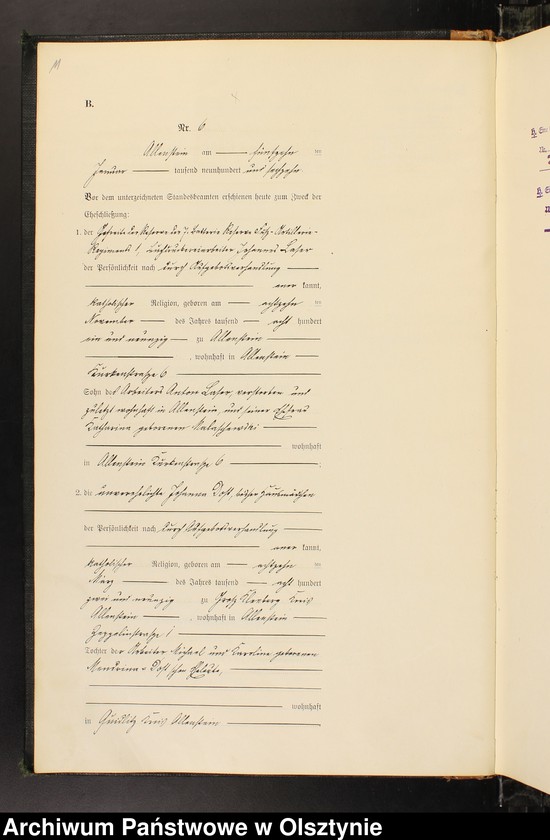 11
B.
Nr. 6
Allenstein am fünfzehn ten
Januar tausend neunhundert und sechzehn
Vor dem unterzeichneten Standesbeamten erschienen heute zum Zweck der
Eheschließung:
1. der Gefreite der Reserve der 7. Batterie Reserve Artillerie-
Regiments 1, Johannes Laser
der Persönlichkeit nach durch Aufgebotsverhandlung
aner kannt,
katholischer Religion, geboren am achtzehn ten
November des Jahres tausend acht hundert
ein und neunzig zu Allenstein
, wohnhaft in Allenstein
6
Sohn des Arbeiters Anton Laser, verstorben und
zuletzt wohnhaft in Allenstein, und seiner Ehefrau
Katharina geborenen
wohnhaft
in Allenstein 6
2. die unverehelichte Johanna Dost, bisher Hausmädchen
der Persönlichkeit nach durch Aufgebotsverhandlung
aner kannt,
katholischer Religion, geboren am achtzehn ten
März des Jahres tausend acht hundert
zwei und neunzig zu Groß Kleeberg Kreis
Allenstein , wohnhaft in Allenstein
Zeppelinstraße 1
Tochter der Arbeiter Michael und Karoline geborenen
Dost'schen Eheleute,
wohnhaft
in Kreis Allenstein
Archiwum Państwowe w Olsztynie